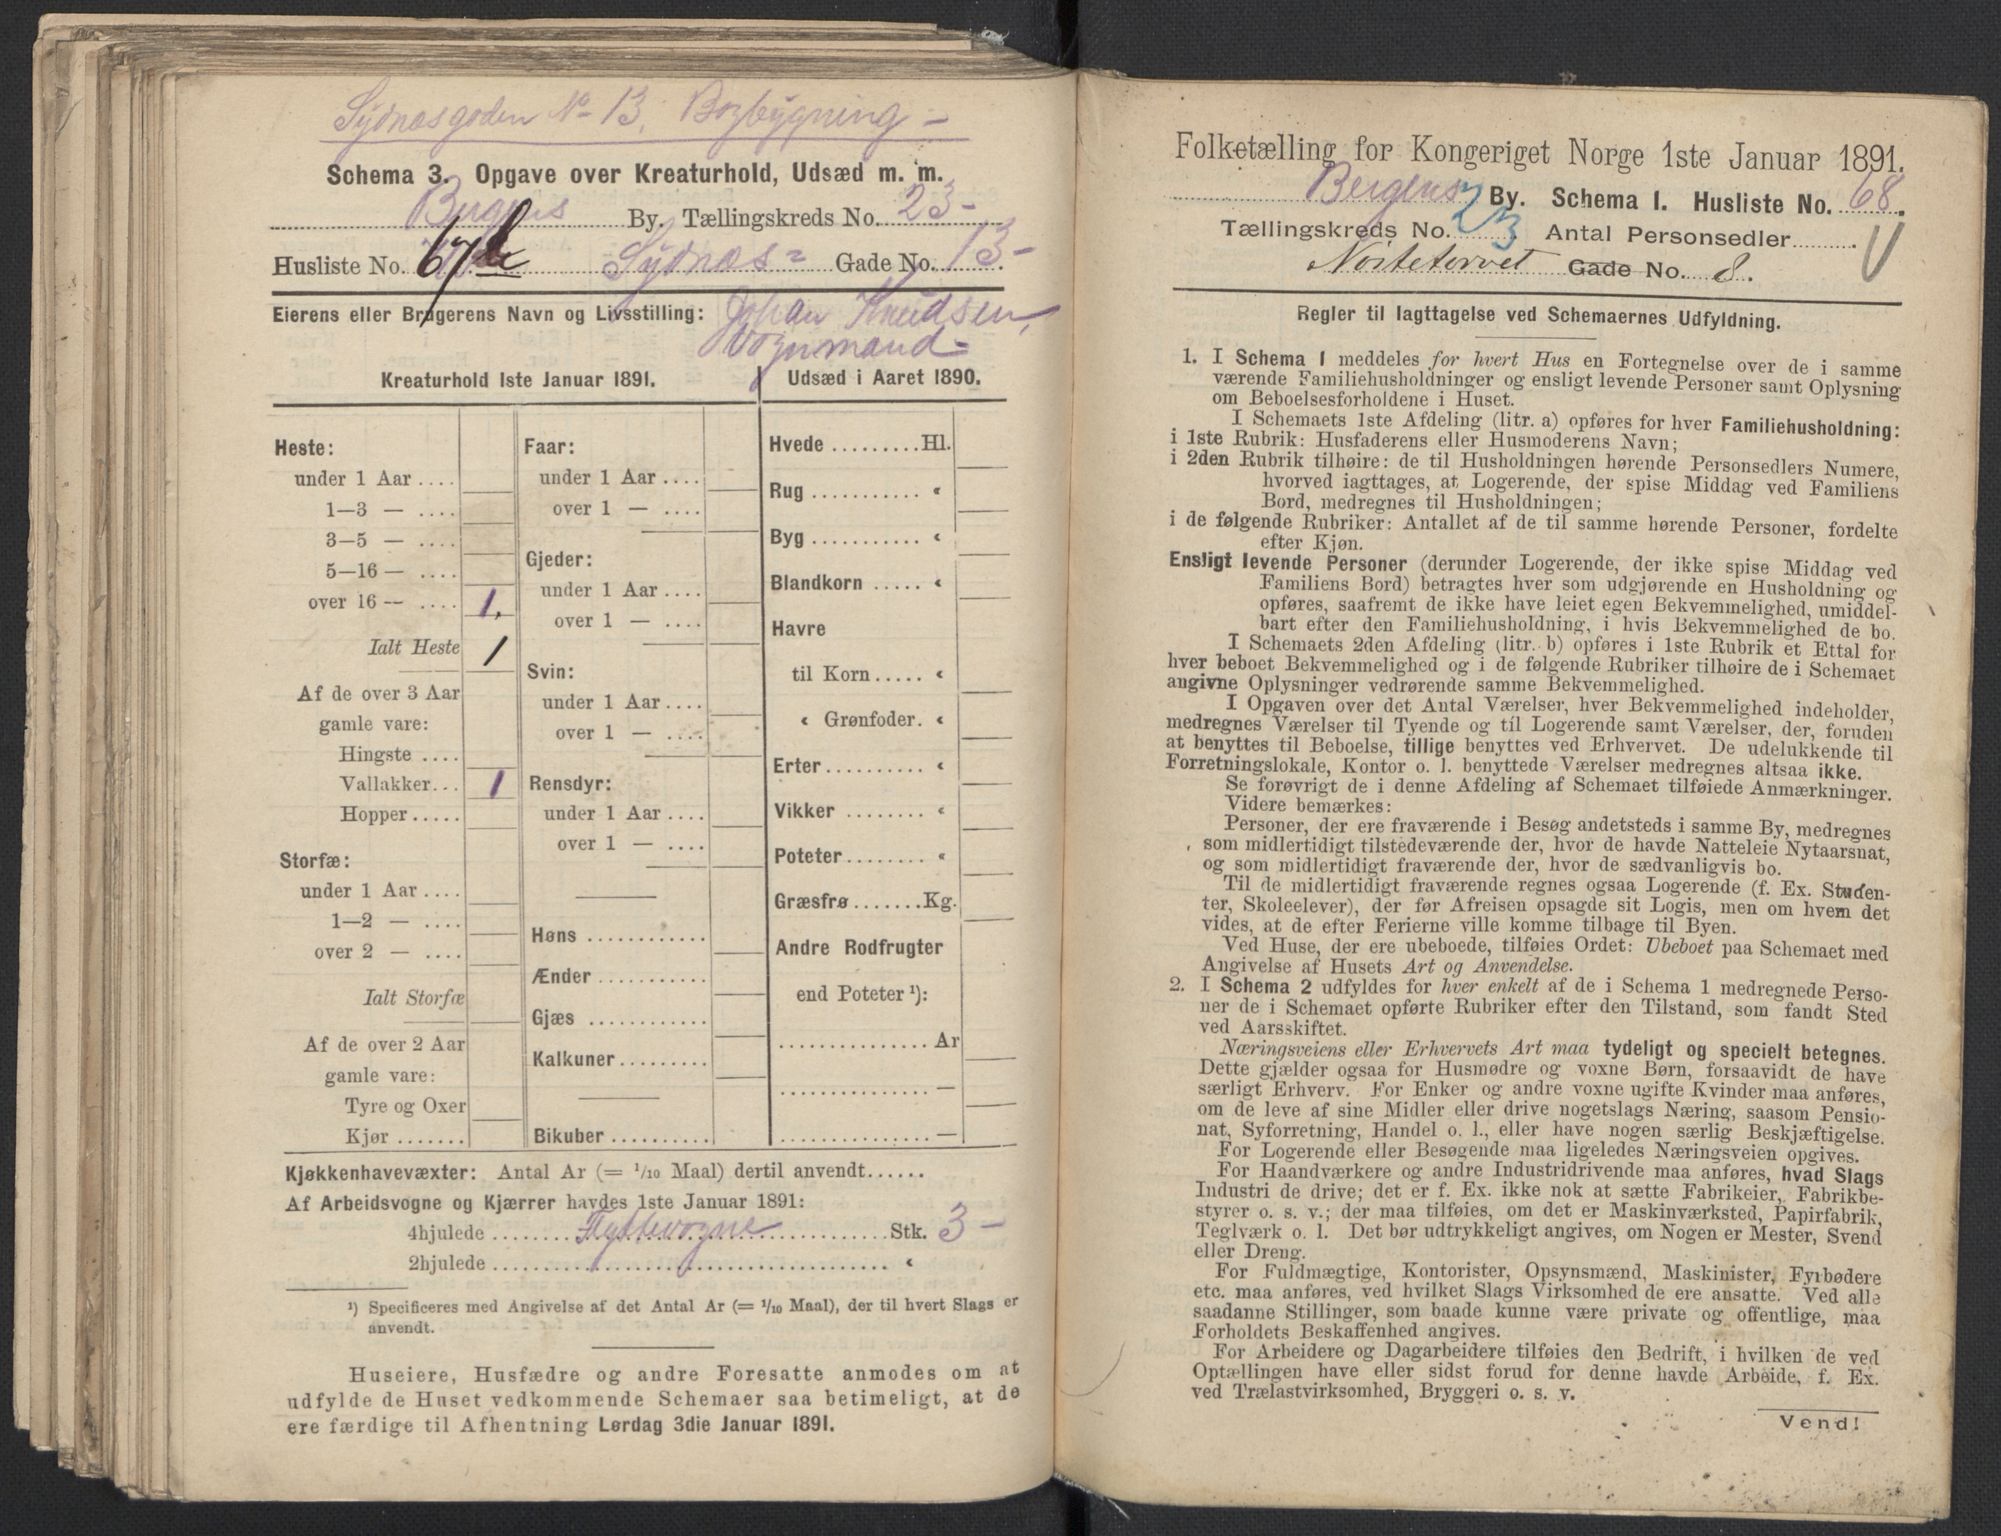 Sydnæsgaden No 13, Bagbygning –
Schema 3. Opgave over Kreaturhold, Udsæd m. m.
Bergens By. Tællingskreds No. 23 –
Husliste No. 67b Sydnæs- Gade No. 13 –
Eierens eller Brugerens Navn og Livsstilling: Johan Knudsen,
Vognmand –
Kreaturhold 1ste Januar 1891.
Heste:
under 1 Aar ....
1—3 — ....
3—5 — ....
5—16 — ....
over 16 — .... 1.
Ialt Heste 1
Af de over 3 Aar
gamle vare:
Hingste ....
Vallakker... 1
Hopper .....
Storfæ:
under 1 Aar ....
1—2 — ....
over 2 — ....
Ialt Storfæ
Af de over 2 Aar
gamle vare:
Tyre og Oxer
Kjør .......
Faar:
under 1 Aar ....
over 1 — ....
Gjeder:
under 1 Aar ....
over 1 — ....
Svin:
under 1 Aar ....
over 1 — ....
Rensdyr:
under 1 Aar ....
over 1 — ....
Høns ............
Ænder ...........
Gjæs ............
Kalkuner.........
Bikuber ..........
Udsæd i Aaret 1890.
Hvede .........Hl.
Rug ........... «
Byg ........... «
Blandkorn ..... «
Havre
til Korn..... «
« Grønfoder. «
Erter.......... «
Vikker ........ «
Poteter........ «
Græsfrø.......Kg.
Andre Rodfrugter
end Poteter ¹):
............... Ar
............... —
............... —
Kjøkkenhavevæxter: Antal Ar (= 1/10 Maal) dertil anvendt......
Af Arbeidsvogne og Kjærrer havdes 1ste Januar 1891:
4hjulede ........ Flyttevogne ........ Stk. 3 –
2hjulede ........................................ «
¹) Specificeres med Angivelse af det Antal Ar (= 1/10 Maal), der til hvert Slags er
anvendt.
Huseiere, Husfædre og andre Foresatte anmodes om at
udfylde de Huset vedkommende Schemaer saa betimeligt, at de
ere færdige til Afhentning Lørdag 3die Januar 1891.
Folketælling for Kongeriget Norge 1ste Januar 1891.
Bergens By. Schema I. Husliste No. 68.
Tællingskreds No. 23 Antal Personsedler.........
Nøstetorvet Gade No. 8.
Regler til Iagttagelse ved Schemaernes Udfyldning.
1. I Schema 1 meddeles for hvert Hus en Fortegnelse over de i samme
værende Familiehusholdninger og ensligt levende Personer samt Oplysning
om Beboelsesforholdene i Huset.
I Schemaets 1ste Afdeling (litr. a) opføres for hver Familiehusholdning:
i 1ste Rubrik: Husfaderens eller Husmoderens Navn;
i 2den Rubrik tilhøire: de til Husholdningen hørende Personsedlers Numere,
hvorved iagttages, at Logerende, der spise Middag ved Familiens
Bord, medregnes til Husholdningen;
i de følgende Rubriker: Antallet af de til samme hørende Personer, fordelte
efter Kjøn.
Ensligt levende Personer (derunder Logerende, der ikke spise Middag ved
Familiens Bord) betragtes hver som udgjørende en Husholdning og
opføres, saafremt de ikke have leiet egen Bekvemmelighed, umiddel-
bart efter den Familiehusholdning, i hvis Bekvemmelighed de bo.
I Schemaets 2den Afdeling (litr. b) opføres i 1ste Rubrik et Ettal for
hver beboet Bekvemmelighed og i de følgende Rubriker tilhøire de i Schemaet
angivne Oplysninger vedrørende samme Bekvemmelighed.
I Opgaven over det Antal Værelser, hver Bekvemmelighed indeholder,
medregnes Værelser til Tyende og til Logerende samt Værelser, der, foruden
at benyttes til Beboelse, tillige benyttes ved Erhvervet. De udelukkende til
Forretningslokale, Kontor o. l. benyttede Værelser medregnes altsaa ikke.
Se forøvrigt de i denne Afdeling af Schemaet tilføiede Anmærkninger.
Videre bemærkes:
Personer, der ere fraværende i Besøg andetsteds i samme By, medregnes
som midlertidigt tilstedeværende der, hvor de havde Natteleie Nytaarsnat,
og som midlertidigt fraværende der, hvor de sædvanligvis bo.
Til de midlertidigt fraværende regnes ogsaa Logerende (f. Ex. Studen-
ter, Skoleelever), der før Afreisen opsagde sit Logis, men om hvem det
vides, at de efter Ferierne ville komme tilbage til Byen.
Ved Huse, der ere ubeboede, tilføies Ordet: Ubeboet paa Schemaet med
Angivelse af Husets Art og Anvendelse.
2. I Schema 2 udfyldes for hver enkelt af de i Schema 1 medregnede Perso-
ner de i Schemaet opførte Rubriker efter den Tilstand, som fandt Sted
ved Aarsskiftet.
Næringsveiens eller Erhvervets Art maa tydeligt og specielt betegnes.
Dette gjælder ogsaa for Husmødre og voxne Børn, forsaavidt de have
særligt Erhverv. For Enker og andre voxne ugifte Kvinder maa anføres,
om de leve af sine Midler eller drive nogetslags Næring, saasom Pensio-
nat, Syforretning, Handel o. l., eller have nogen særlig Beskjæftigelse.
For Logerende eller Besøgende maa ligeledes Næringsveien opgives.
For Haandværkere og andre Industridrivende maa anføres, hvad Slags
Industri de drive; det er f. Ex. ikke nok at sætte Fabrikeier, Fabrikbe-
styrer o. s. v.; der maa tilføies, om det er Maskinværksted, Papirfabrik,
Teglværk o. l. Det bør udtrykkeligt angives, om Nogen er Mester, Svend
eller Dreng.
For Fuldmægtige, Kontorister, Opsynsmænd, Maskinister, Fyrbødere
etc. maa anføres, ved hvilket Slags Virksomhed de ere ansatte. Ved alle
saadanne Stillinger, som baade kunne være private og offentlige, maa
Forholdets Beskaffenhed angives.
For Arbeidere og Dagarbeidere tilføies den Bedrift, i hvilken de ved
Optællingen have eller sidst forud for denne havde Arbeide, f. Ex.
ved Trælastvirksomhed, Bryggeri o. s. v.
Vend!